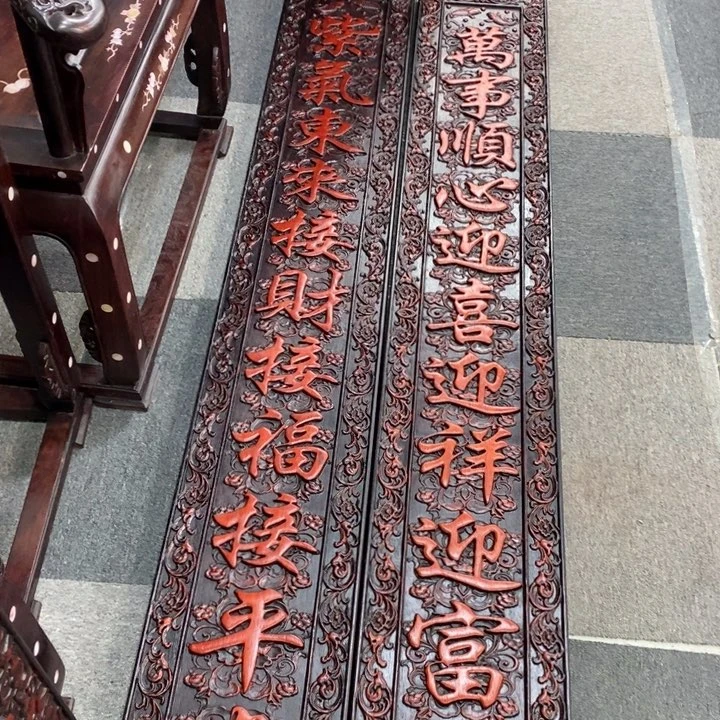 萬事順心迎喜迎祥迎富
紫氣東來接財接福接平